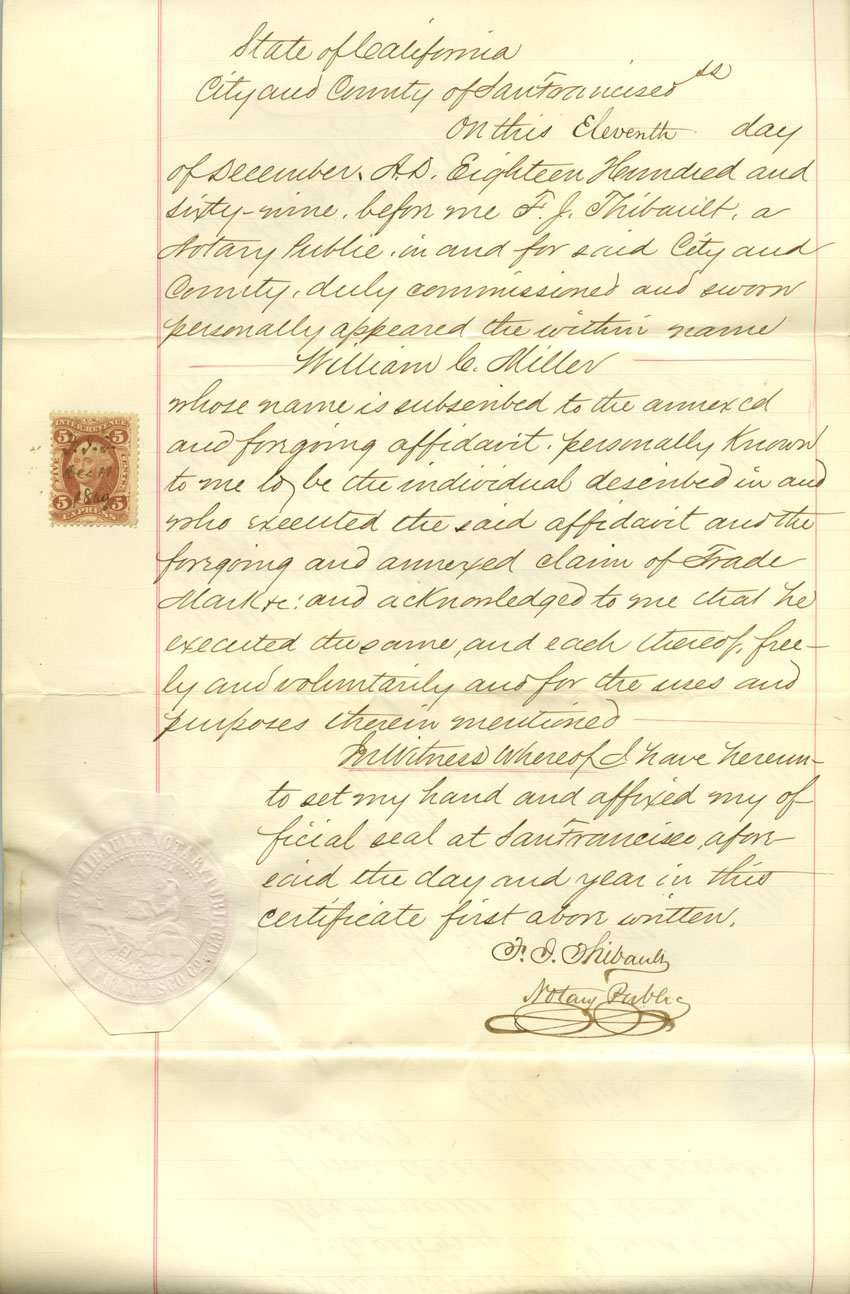 State of California
City and County of San Francisco ss
On this Eleventh day
of December, A.D. Eighteen Hundred and
sixty-nine, before me F. J. Thibault, a
Notary Public, in and for said City and
County, duly commissioned and sworn
personally appeared the within name
William C. Miller
whose name is subscribed to the annexed
and foregoing affidavit, personally Known
to me to be the individual described in and
who executed the said affidavit and the
foregoing and annexed claim of Trade
Mark &c: and acknowledged to me that he
executed the same, and each thereof, free-
ly and voluntarily and for the uses and
purposes therein mentioned
In Witness Whereof I have hereun-
to set my hand and affixed my of
ficial seal at San Francisco, afore
said the day and year in this
certificate first above written.
F. J. Thibault
Notary Public
U.S.
INTER. REVENUE
5 5
FIVE CENTS
1869
5 5
EXPRESS
THIBAULT NOTARY PUBLIC
SAN FRANCISCO CO.